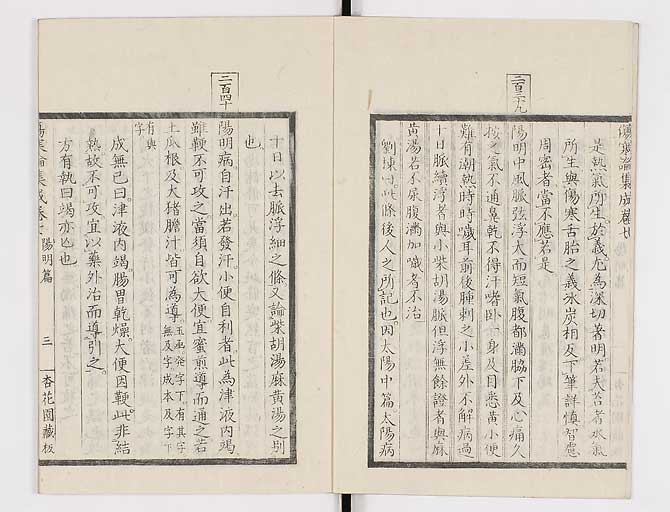 傷寒論集成卷七
是熱氣所生於義尤為深切著明若夫苔者水氣
所生與傷寒舌胎之義氷炭相反下筆詳慎智慮
周密者當不應若是
二百三十九
陽明中風脈弦浮大而短氣腹都滿脇下及心痛久
按之氣不通鼻乾不得汗嗜卧一身及目悉黃小便
難有潮熱時時噦耳前後腫刺之小差外不解病過
十日脈續浮者與小柴胡湯脈但浮無餘證者與麻
黃湯若不尿腹滿加噦者不治
劉棟曰此條後人之所記也因太陽中篇太陽病
十日以去脈浮細之條又論柴胡湯麻黃湯之別
也
二百四十
陽明病自汗出若發汗小便自利者此為津液內竭
雖鞕不可攻之當須自欲大便宜蜜煎導而通之若
土瓜根及大猪膽汁皆可為導玉函發字下有其字無及字成本及字下
有與字
成無已曰津液內竭腸胃乾燥大便因鞕此非結
熱故不可攻宜以藥外治而導引之
方有執曰竭亦亡也
陽明篇
三
杏花園藏板